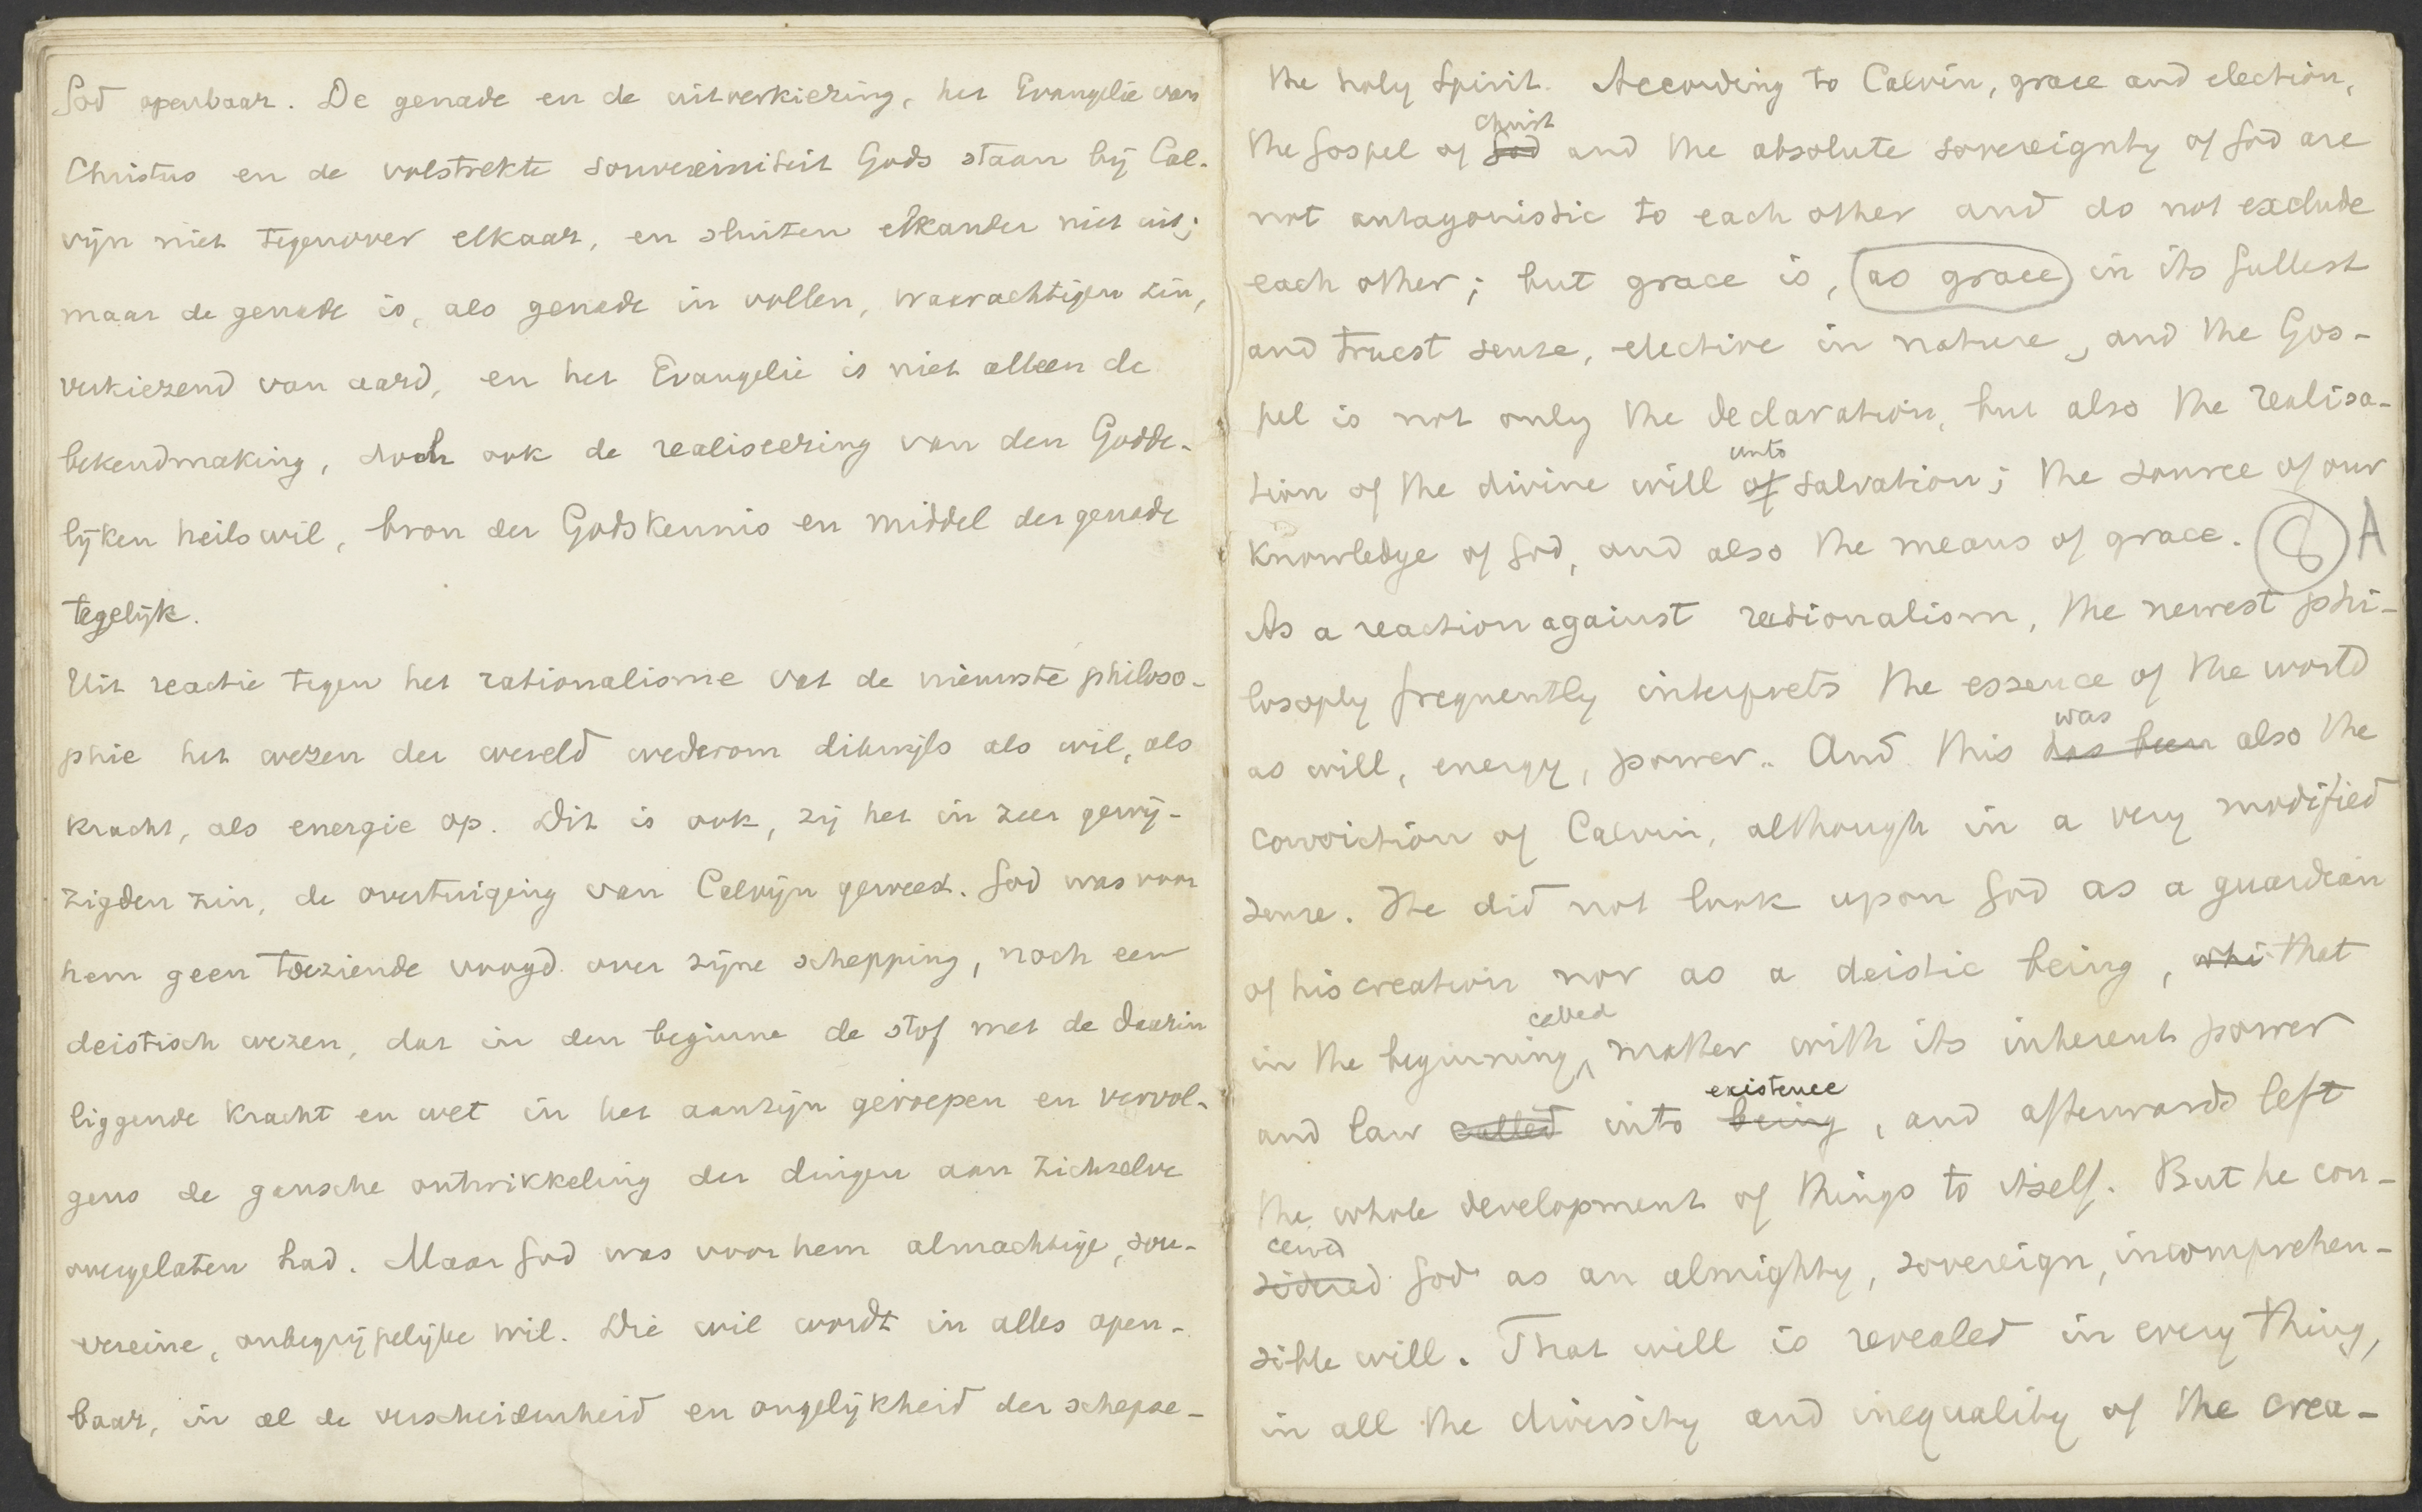 God openbaar. De genade en de uitverkiezing, het Evangelie van
Christus en de volstrekte souvereiniteit Gods staan bij Cal-
vijn niet tegenover elkaar, en sluiten elkander niet uit;
maar de genade is, als genade in vollen, waarachtigen zin,
verkiezend van aard, en het Evangelie is niet alleen de
bekendmaking, doch ook de realiseering van den Godde-
lijken heilswil, bron der Godskennis en middel der genade
tegelijk.
Uit reactie tegen het rationalisme vat de nieuwste philoso-
phie het wezen der wereld wederom dikwijls als wil, als
kracht, als energie op. Dit is ook, zij het in zeer gewij-
zigden zin, de overtuiging van Calvijn geweest. God was voor
hem geen toeziende voogd over zijne schepping, noch een
deistisch wezen, dat in den beginne de stof met de daarin
liggende kracht en wet in het aanzijn geroepen en vervol-
gens de gansche ontwikkeling der dingen aan zichzelve
overgelaten had. Maar God was voor hem almachtige, sou-
vereine, onbegrijpelijke wil. Die wil wordt in alles open-
baar, in al de verscheidenheid en ongelijkheid der schepse-
the holy Spirit. According to Calvin, grace and election,
Christ
the Gospel of God and the absolute sovereignty of God are
not antagonistic to each other and do not exclude
each other; but grace is, as grace in its fullest
and truest sense, elective in nature, and the Gos-
pel is not only the declaration, but also the realisa-
unto
tion of the divine will of salvation; the source of our
knowledge of God, and also the means of grace. 8 A
As a reaction against rationalism, the newest phi-
losophy frequently interprets the essence of the world
was
as will, energy, power. And this has been also the
conviction of Calvin, although in a very modified
sense. He did not look upon God as a guardian
of his creation nor as a deistic being, whi that
called
in the beginning matter with its inherent power
existence
and law called into being, and afterwards left
the whole development of things to itself. But he con-
ceived
sidered God as an almighty, sovereign, incomprehen-
sible will. That will is revealed in every thing,
in all the diversity and inequality of the crea-